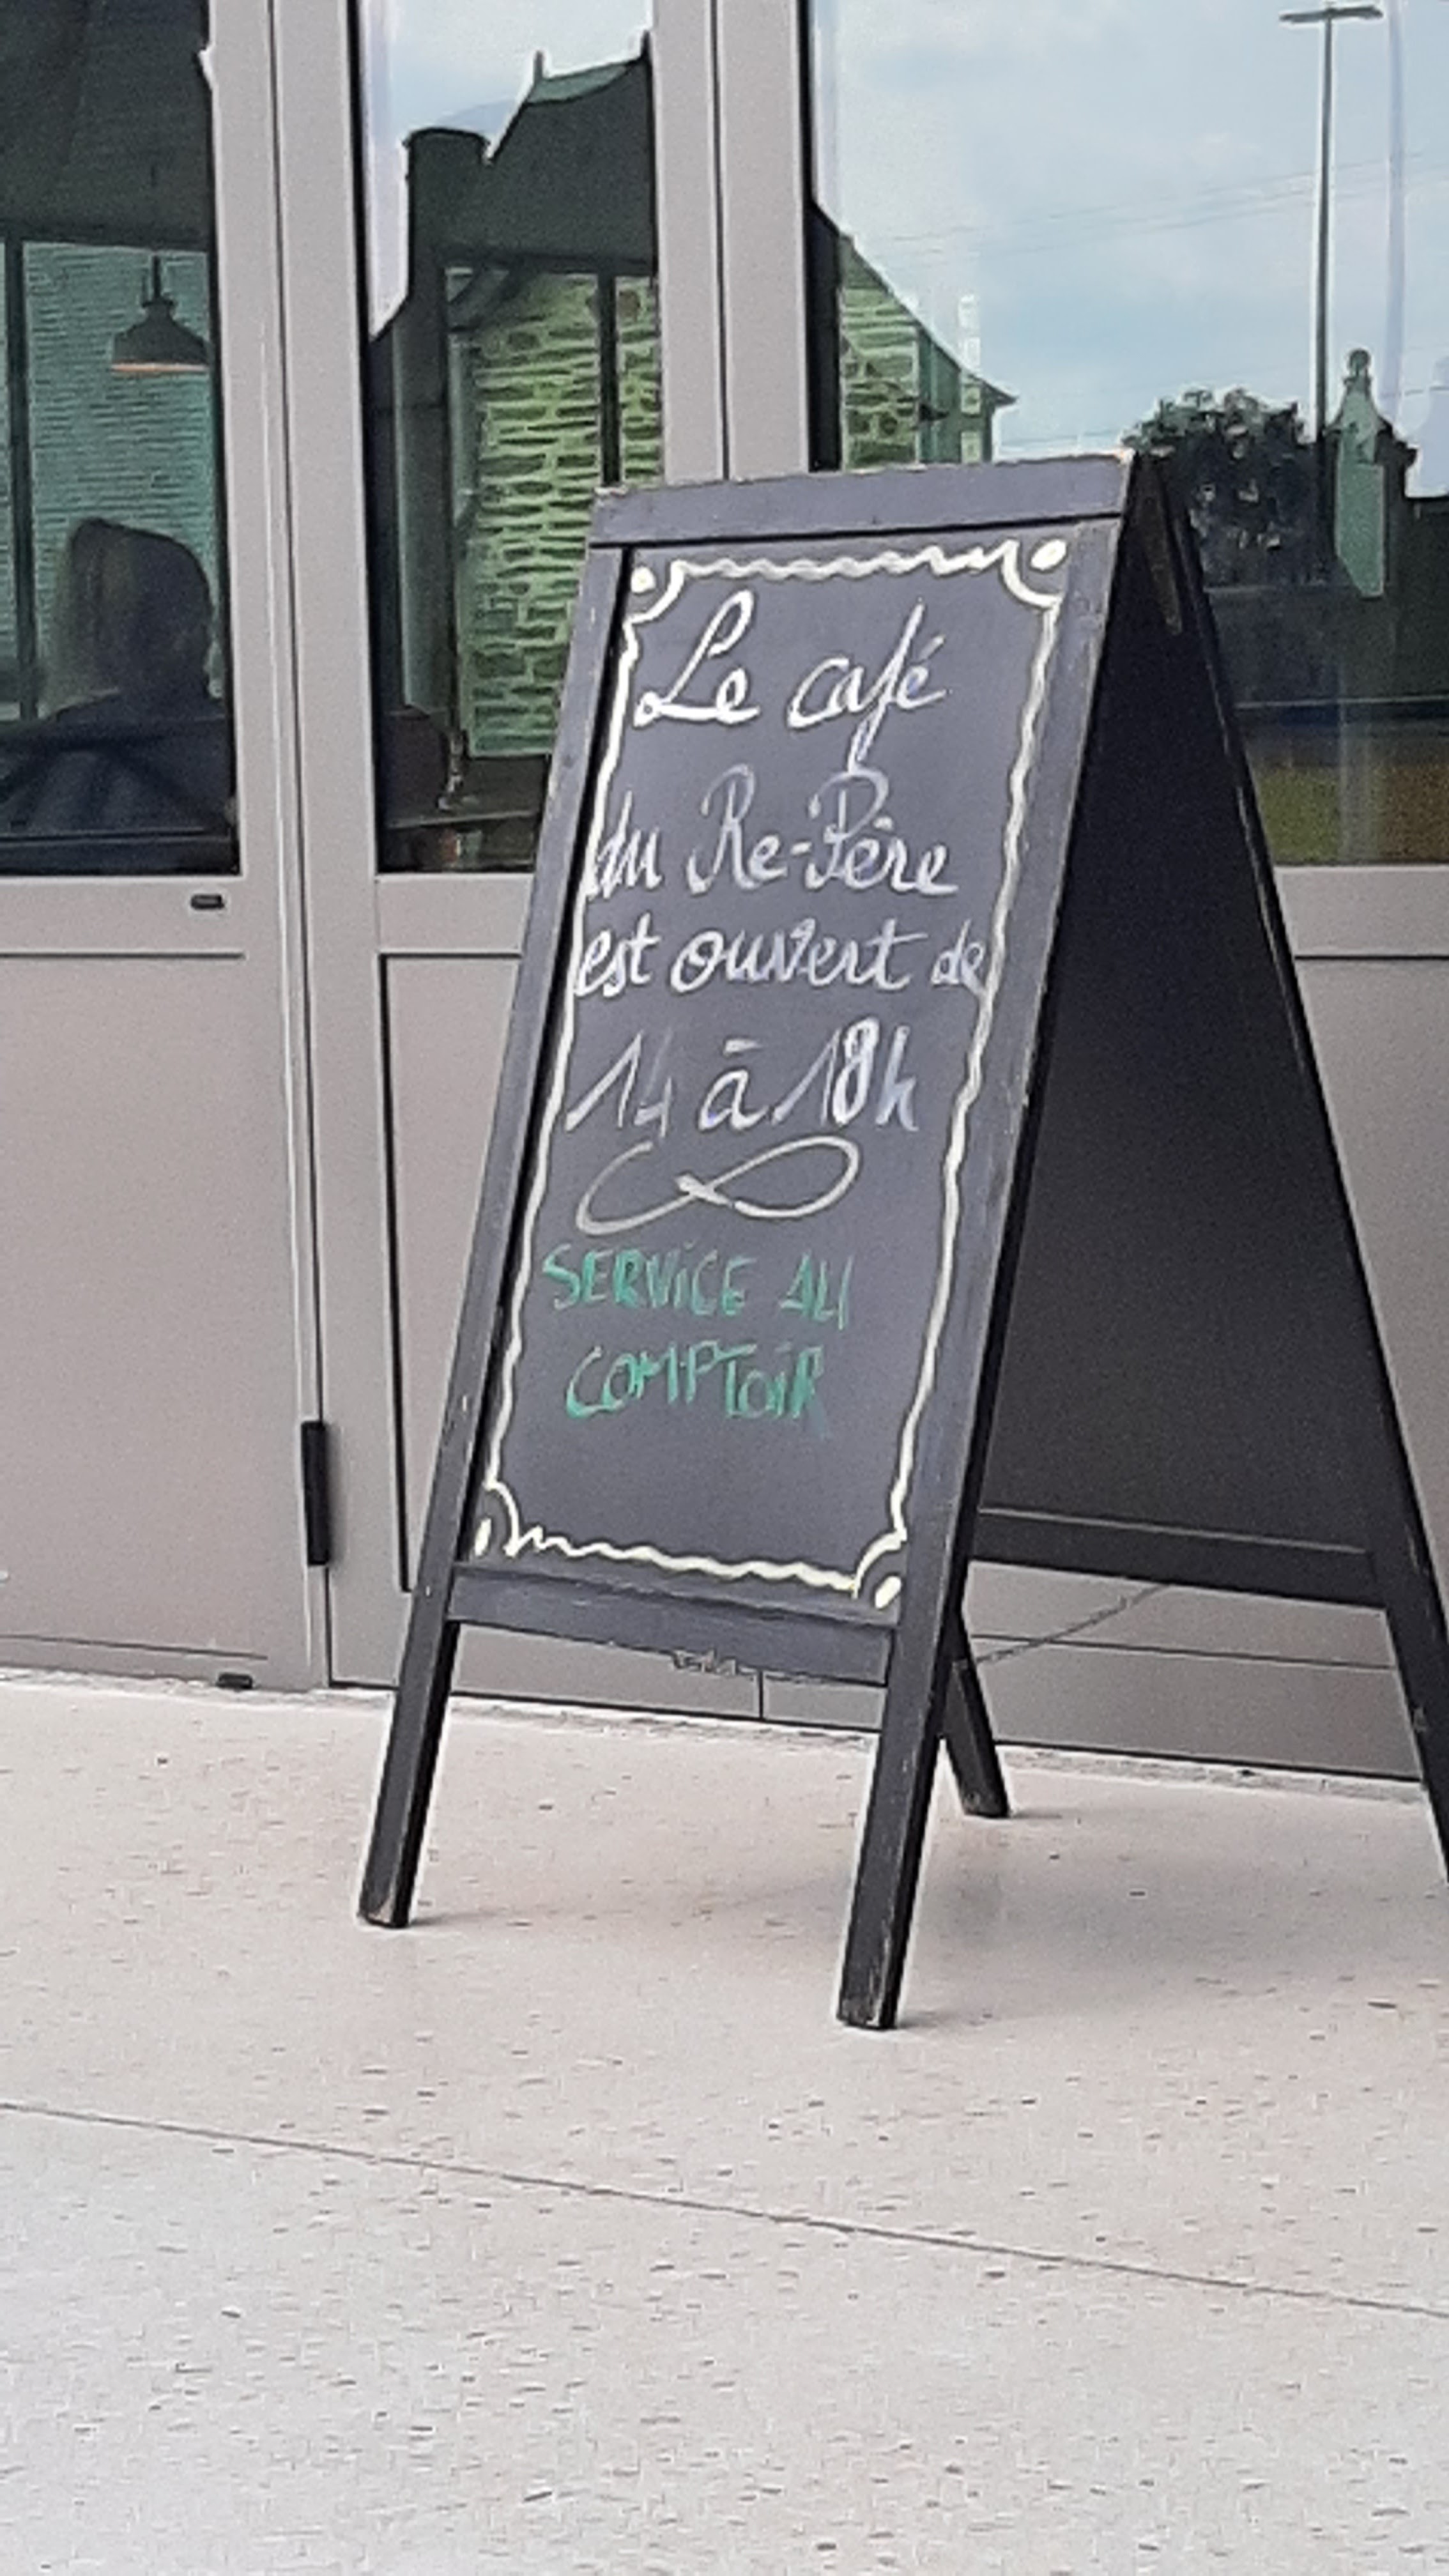 Le café
du Re-Père
est ouvert de
14 à 18h
SERVICE AU
COMPTOIR